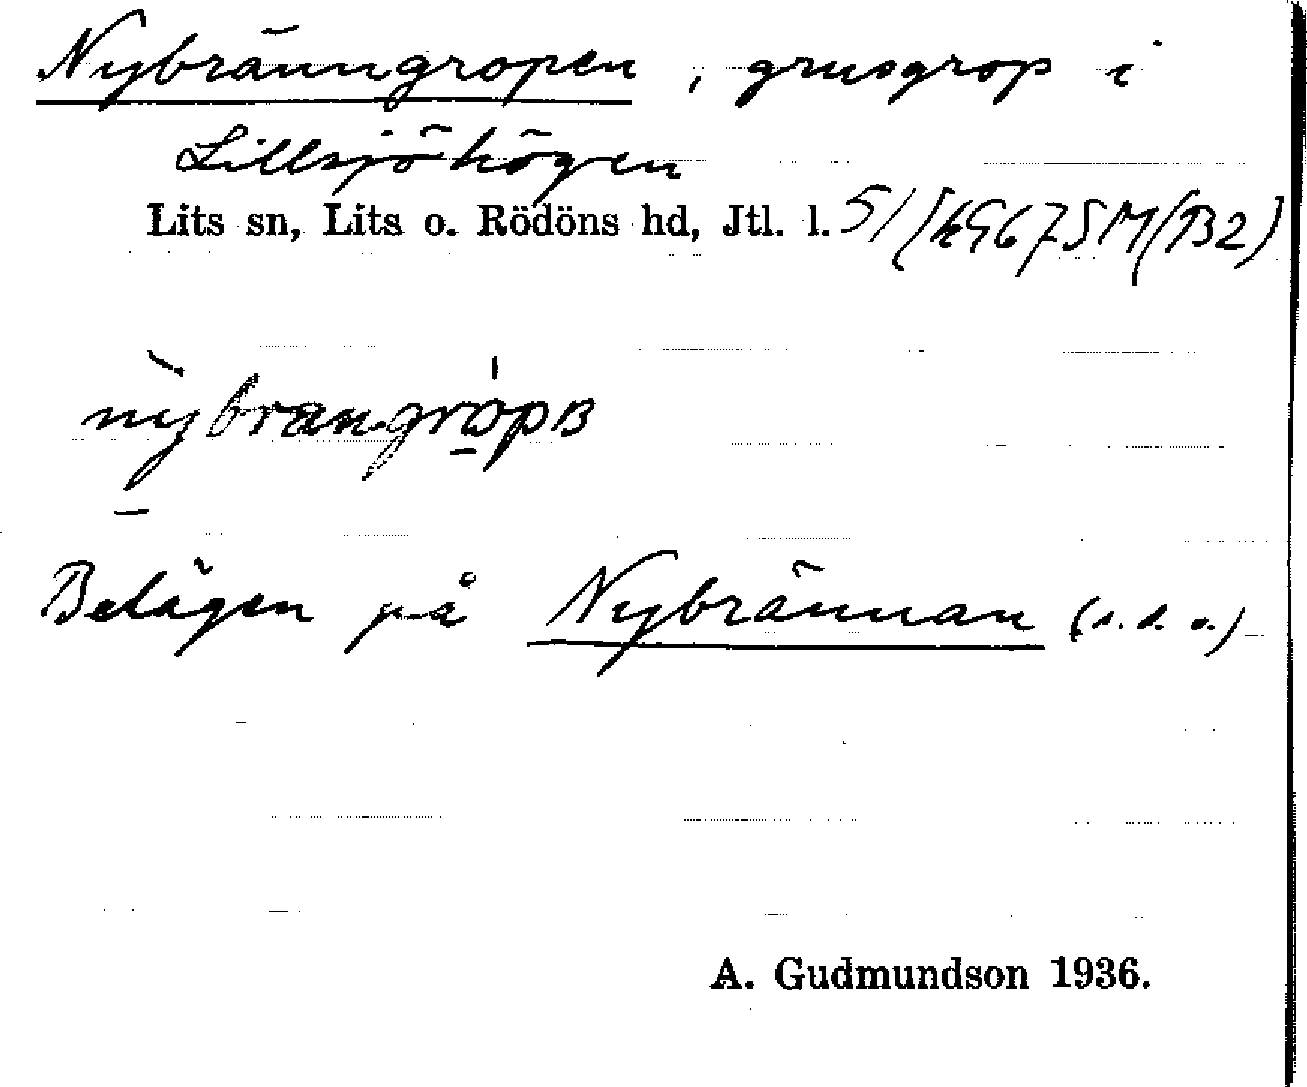 Nybränngropen, grusgrop i
Lillsjöhögen
Lits sn, Lits o. Rödöns hd, Jtl. l. 51
Belägen på Nybrännan (s. d. o.)
A. Gudmundson 1936.